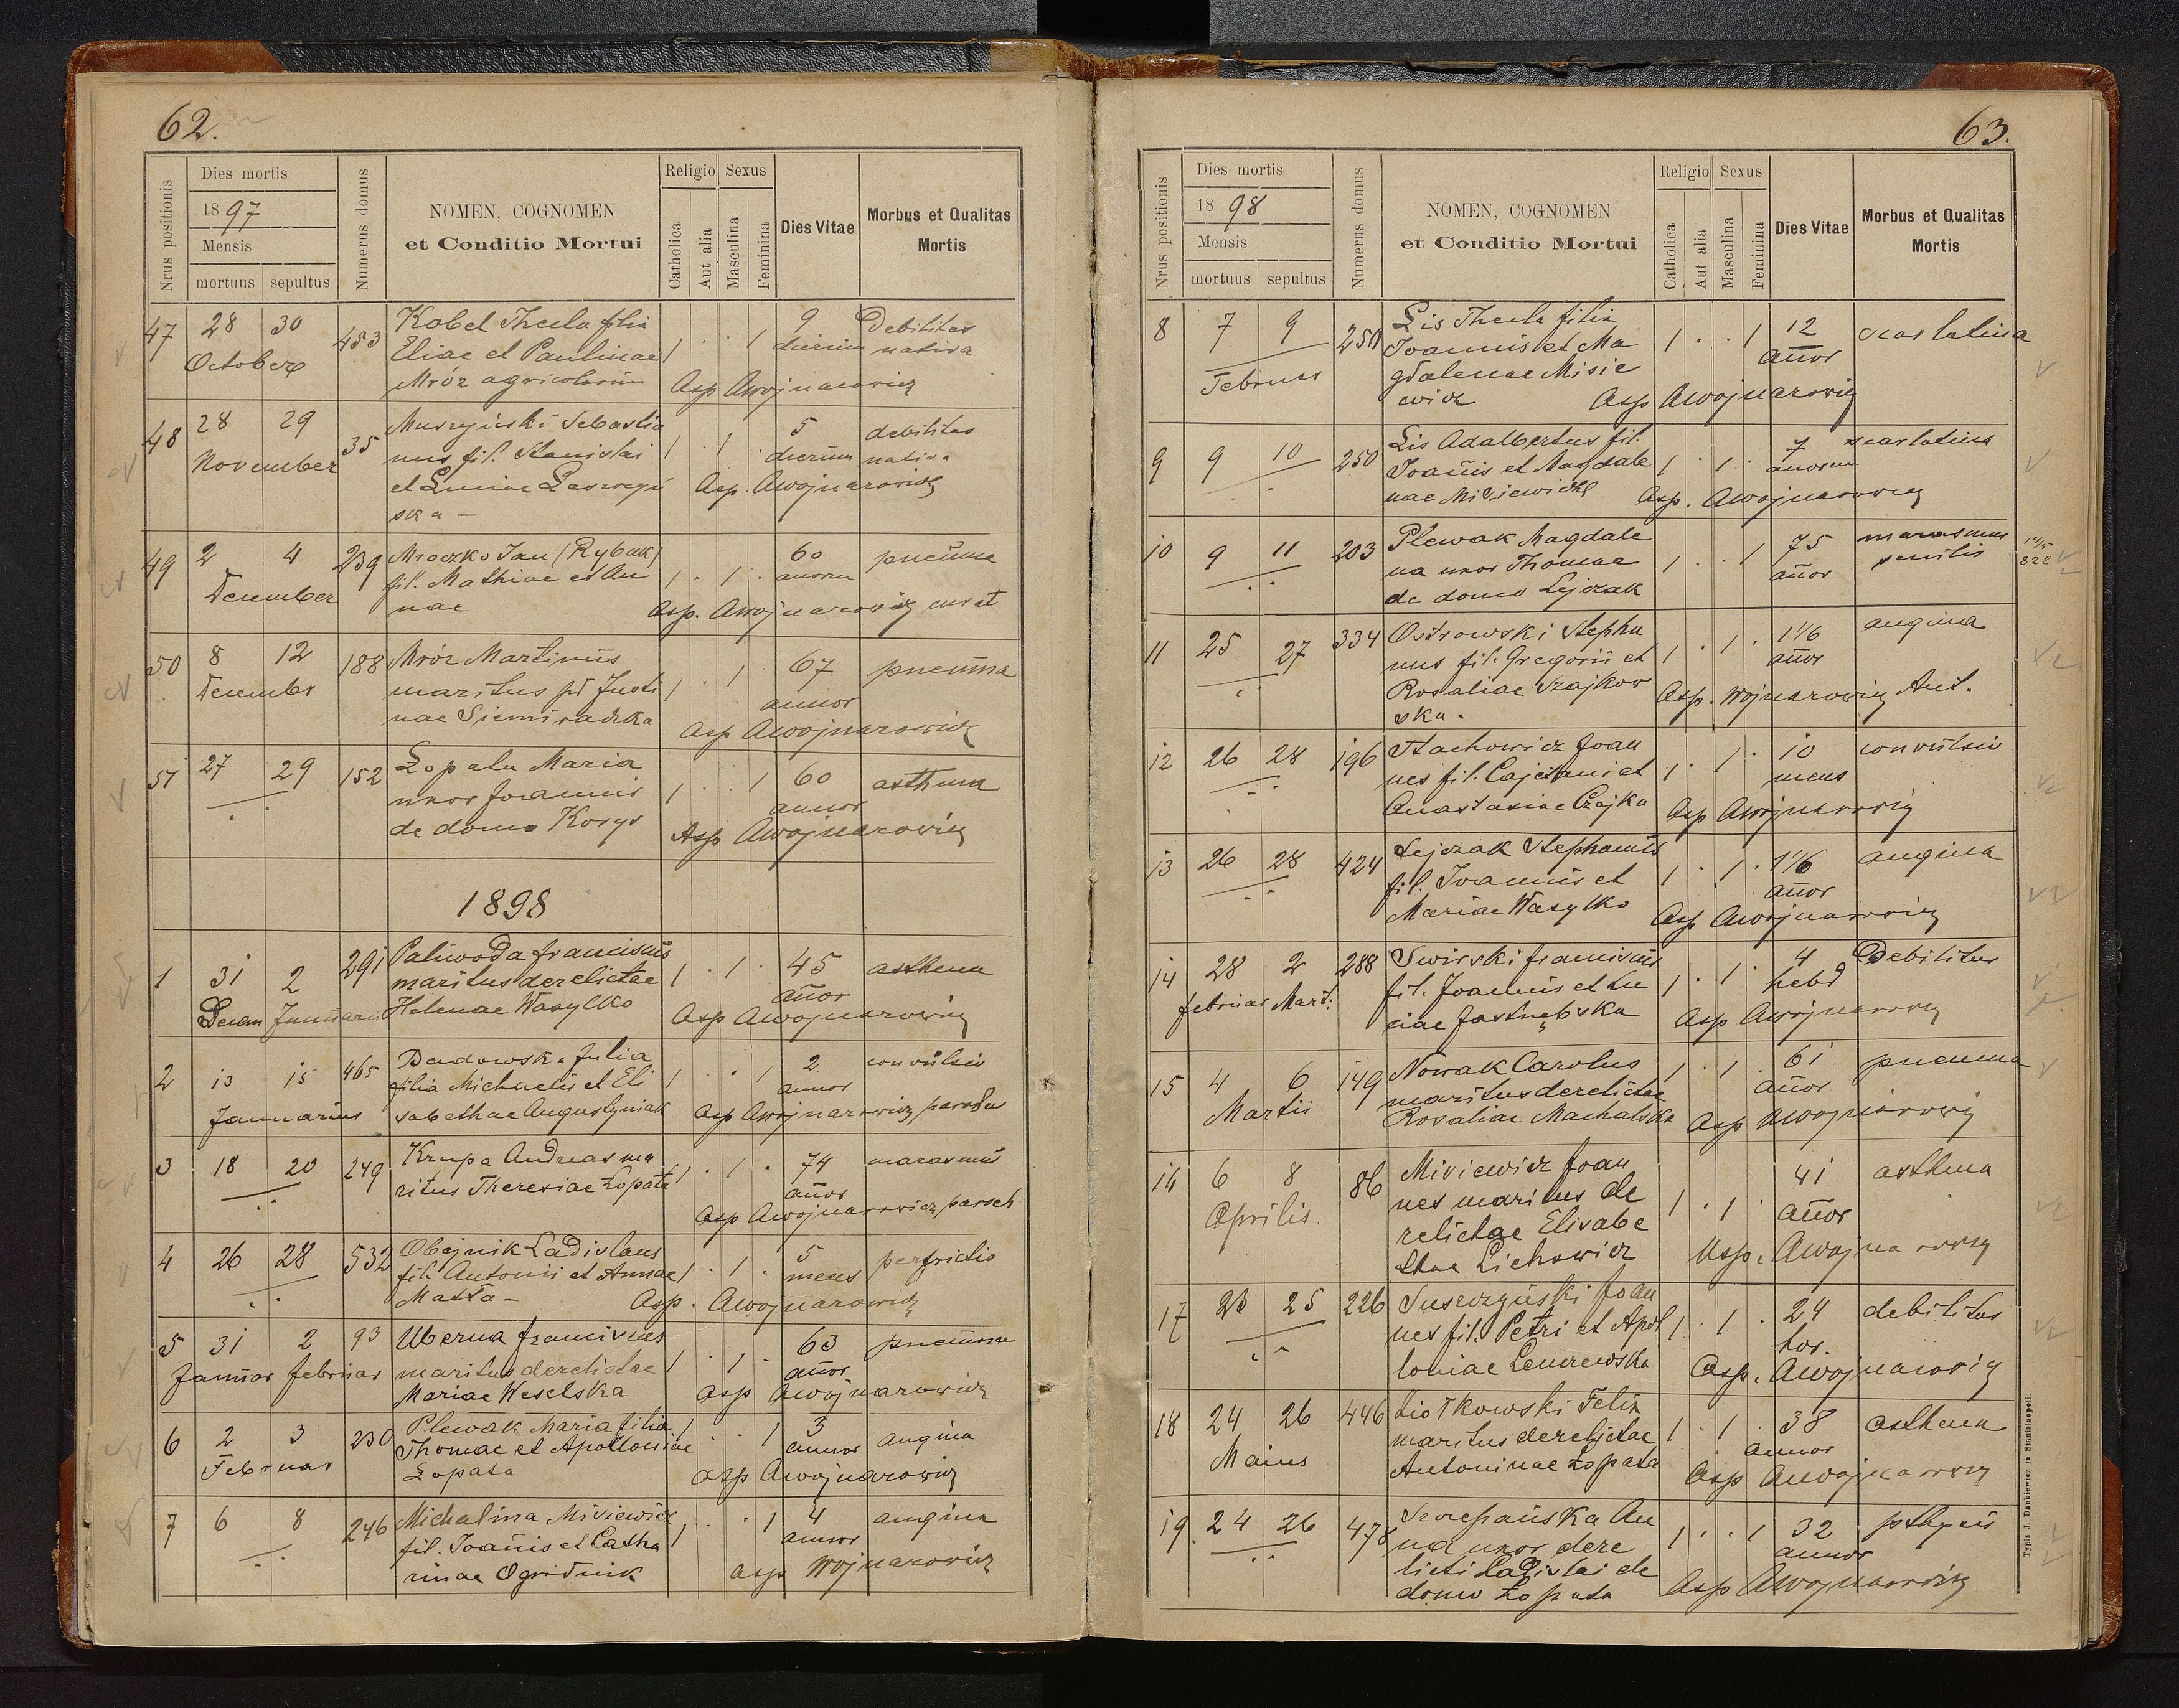 62.
Nrus positionis
Dies mortis
1897
Mensis
mortuus sepultus
Numerus domus
NOMEN, COGNOMEN
et Conditio Mortui
Religio Sexus
Catholica
Aut alia
Masculina
Feminina
Dies Vitae
Morbus et Qualitas
Mortis
47 28 30 453 Kobel Thecla filia 9 Debilitas
October Eliae et Paulinae 1 . . 1 dierum nativa
Mróz agricolarum Asp AWojnarowicz
48 28 29 35 Sebastia 5 debilitas
November nus fil. Stanislai 1 . 1 . dierum nativa
et Asp. AWojnarowicz
ska —
49 2 4 239 Mroczko Jan (Rybak) 60 pneuma
December fil. Mathiae et An 1 . 1 . annorum
nae Asp. AWojnarowicz
50 8 12 188 Mróz Martinus 67 pneuma
December maritus Justi 1 . 1 . annor
nae Siemiradzka Asp AWojnarowicz
51 27 29 152 Łopata Maria 60 asthma
uxor Joannis 1 . . 1 annor
de domo Korys Asp AWojnarowicz
1898
1 31 2 291 Paliwoda Franciscus 45 asthma
maritus derelictae 1 . 1 . añor
Decem Januari Helenae Wasylko Asp AWojnarowicz
2 13 15 465 Dadowska Julia 2 convulsio
filia Michaelis et Eli 1 . . 1 annor
Januarius sabethae Augustyniak Asp AWojnarowicz parochus
3 18 20 249 Krupa Andreas ma 74 marasmus
ritus Theresiae Łopata 1 . 1 . añor
Asp AWojnarowicz, paroch
4 26 28 532 Obejnik Ladislaus 5 perfrictio
fil. Antonii et Annae 1 . 1 . mens
Masta — Asp. AWojnarowicz
5 31 2 93 Uberna Franciscus 63 pneumae
Januar Februar maritus derelictae 1 . 1 . añor
Mariae Weselska Asp AWojnarowicz
6 2 3 230 Plewak Maria filia 3 angina
Februar Thomae et Apolloniae 1 . . 1 annor
Łopata Asp AWojnarowicz
7 6 8 246 Michalina Misiewicz 4 angina
fil. Joañis et Catha 1 . . 1 annor
rinae Ogrodnik Asp Wojnarowicz
63.
Nrus positionis
Dies mortis
1898
Mensis
mortuus sepultus
Numerus domus
NOMEN, COGNOMEN
et Conditio Mortui
Religio Sexus
Catholica
Aut alia
Masculina
Feminina
Dies Vitae
Morbus et Qualitas
Mortis
8 7 9 250 Lis Thecla filia 12 scarlatina
Joannis et Ma 1 . . 1 añor
Februar gdalenae Misie
wicz Asp AWojnarowicz
9 9 10 250 Lis Adalbertus fil. 7 scarlatina
Joañis et Magdale 1 . 1 . anorum
nae Misiewicz Asp. AWojnarowicz
10 9 11 203 Plewak Magdale 75 marasmus
na uxor Thomae 1 . . 1 añor senilis
de domo Lejczak
11 25 27 334 Ostrowski Stepha 1 1/6 angina
nus fil. Gregorii et 1 . 1 . añor
Rosaliae Szajkow Asp. Wojnarowicz Ant.
ska.
12 26 28 196 Stachowicz Joan 10 convulsio
nes fil. Cajetani et 1 . 1 . mens
Anastasiae Czajka Asp AWojnarowicz
13 26 28 424 Lejczak Stephanus 1 1/6 angina
fil. Joannis et 1 . 1 . añor
Mariae Wasylko Asp AWojnarowicz
14 28 2 288 Swirski Franciscus 4 Debilitas
Februar Mart. fil. Joannis et Lu 1 . 1 . hebd
ciae Jastrzębska Asp AWojnarowicz
15 4 6 149 Nowak Carolus 61 pneuma
Martii maritus derelictae 1 . 1 . añor
Rosaliae Machalska Asp AWojnarowicz
16 6 8 86 Misiewicz Joan 41 asthma
Aprilis nes maritus de 1 . 1 . añor
relictae Elisabe
thae Lichowicz Asp. AWojnarowicz
17 23 25 226 Joan 24 debilitas
nes fil. Petri et Apol 1 . 1 . hor.
loniae Asp. AWojnarowicz
18 24 26 446 Felix 38 asthma
Maius maritus derelictae 1 . 1 . annor
Antoninae Łopata Asp AWojnarowicz
19. 24 26 478 Szczepańska An 32 pthysis
na uxor dere 1 . . 1 annor
licti Ladislai de
domo Łopata Asp AWojnarowicz
Typis J. Dankiewicz in Stanislaopoli.